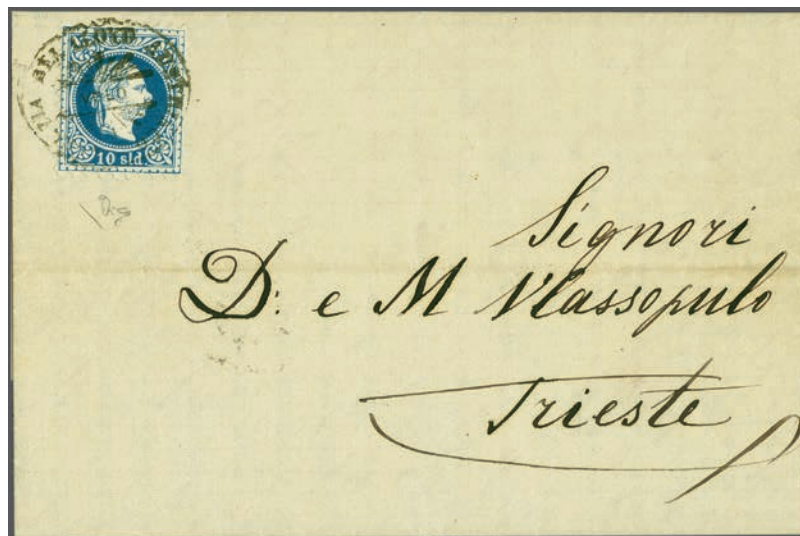 10 sld.
Signori
D: e M Vlassopulo
Trieste